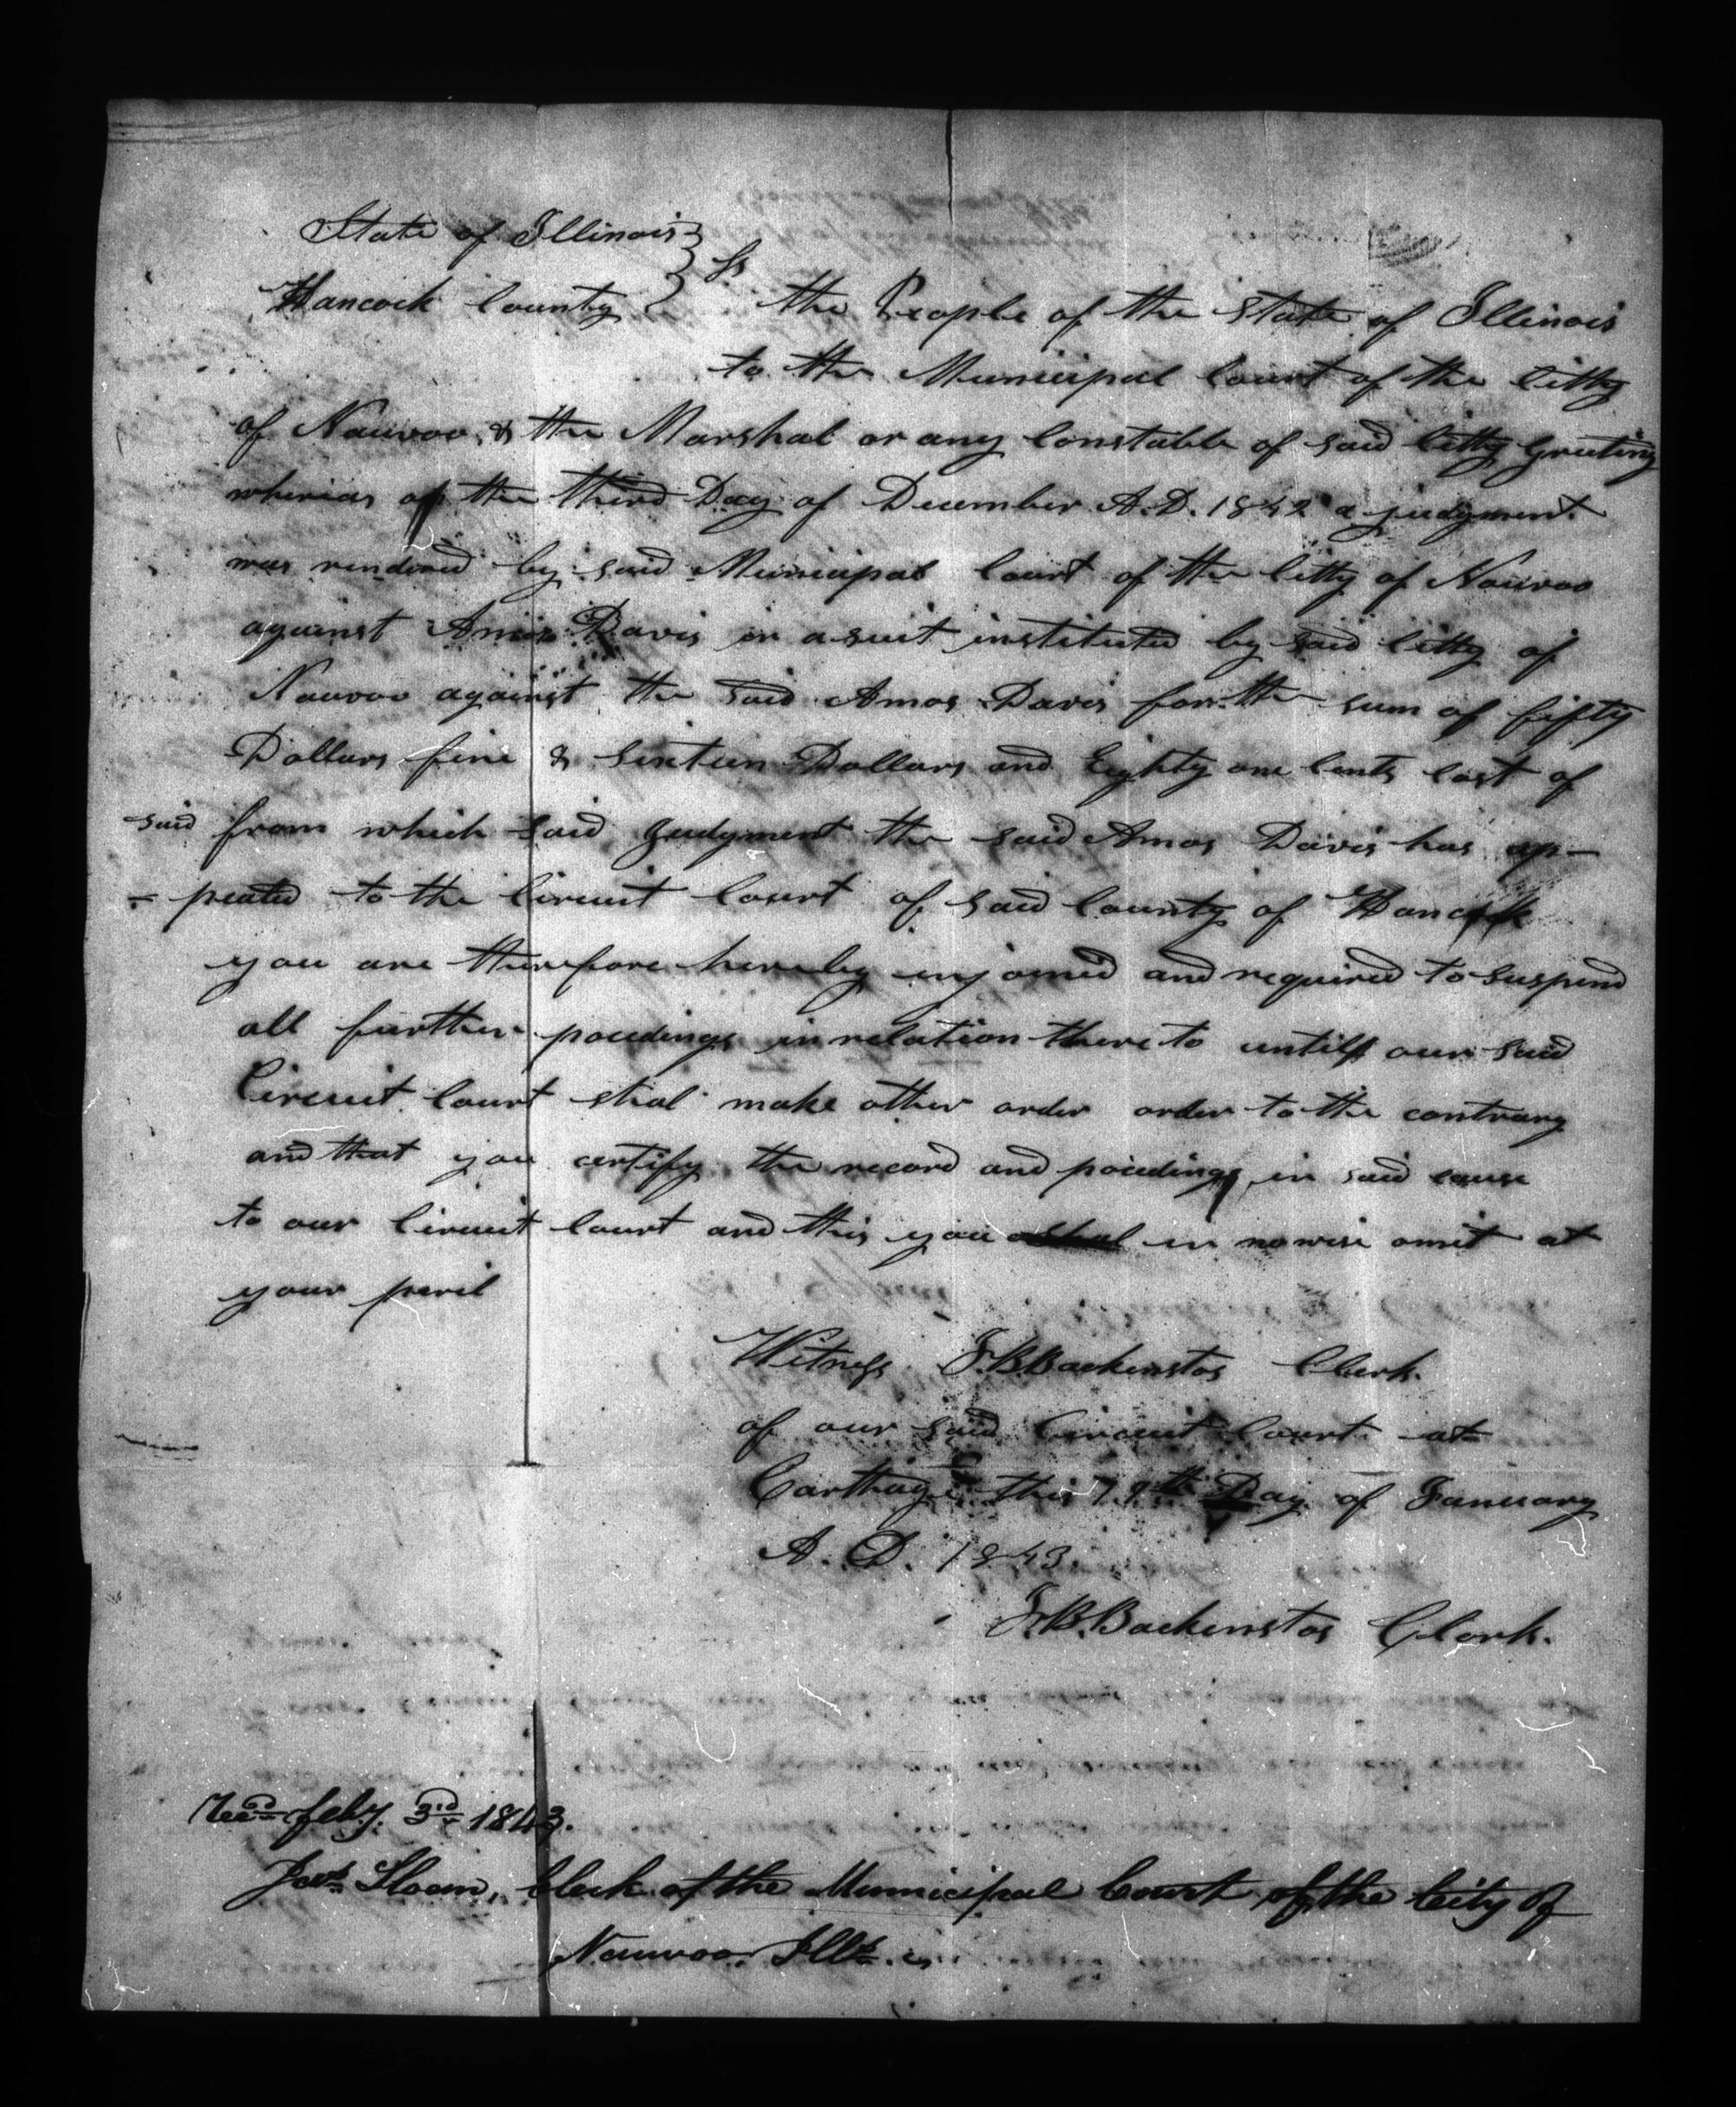 State of Illinois }
Hancock County } ss the People of the State of Illinois
to the Municipal Court of the Citty
of Nauvoo, & the Marshal or any Constable of said Citty Greeting
whereas on the third Day of December A.D. 1842 a judgment
was rendered by said Municipal Court of the Citty of Nauvoo
against Amos Davis in a suit instituted by said Citty of
Nauvoo against the said Amos Davis for the sum of fifty
Dollars fine & sixteen Dollars and Eighty one Cents Cost of
said from which said Judgment the said Amos Davis has ap-
-pealed to the Circuit Court of said County of Hancock
you are therefore hereby enjoined and required to suspend
all further poceedings in relation thereto untill our said
Circuit Court shal make other order order to the contrary
and that you certify the record and poceedings in said cause
to our Circuit Court and this you shal in nowise omit at
your peril
Witness J.B. Backenstos Clerk.
of our said Circuit Court at
Carthage this Day of January
A. D. 1843.
J.B. Backenstos Clerk.
Recd. feby. 3rd 1843.
Jas. Sloan, Clerk of the Municipal Court of the City of
Nauvoo. Ills.